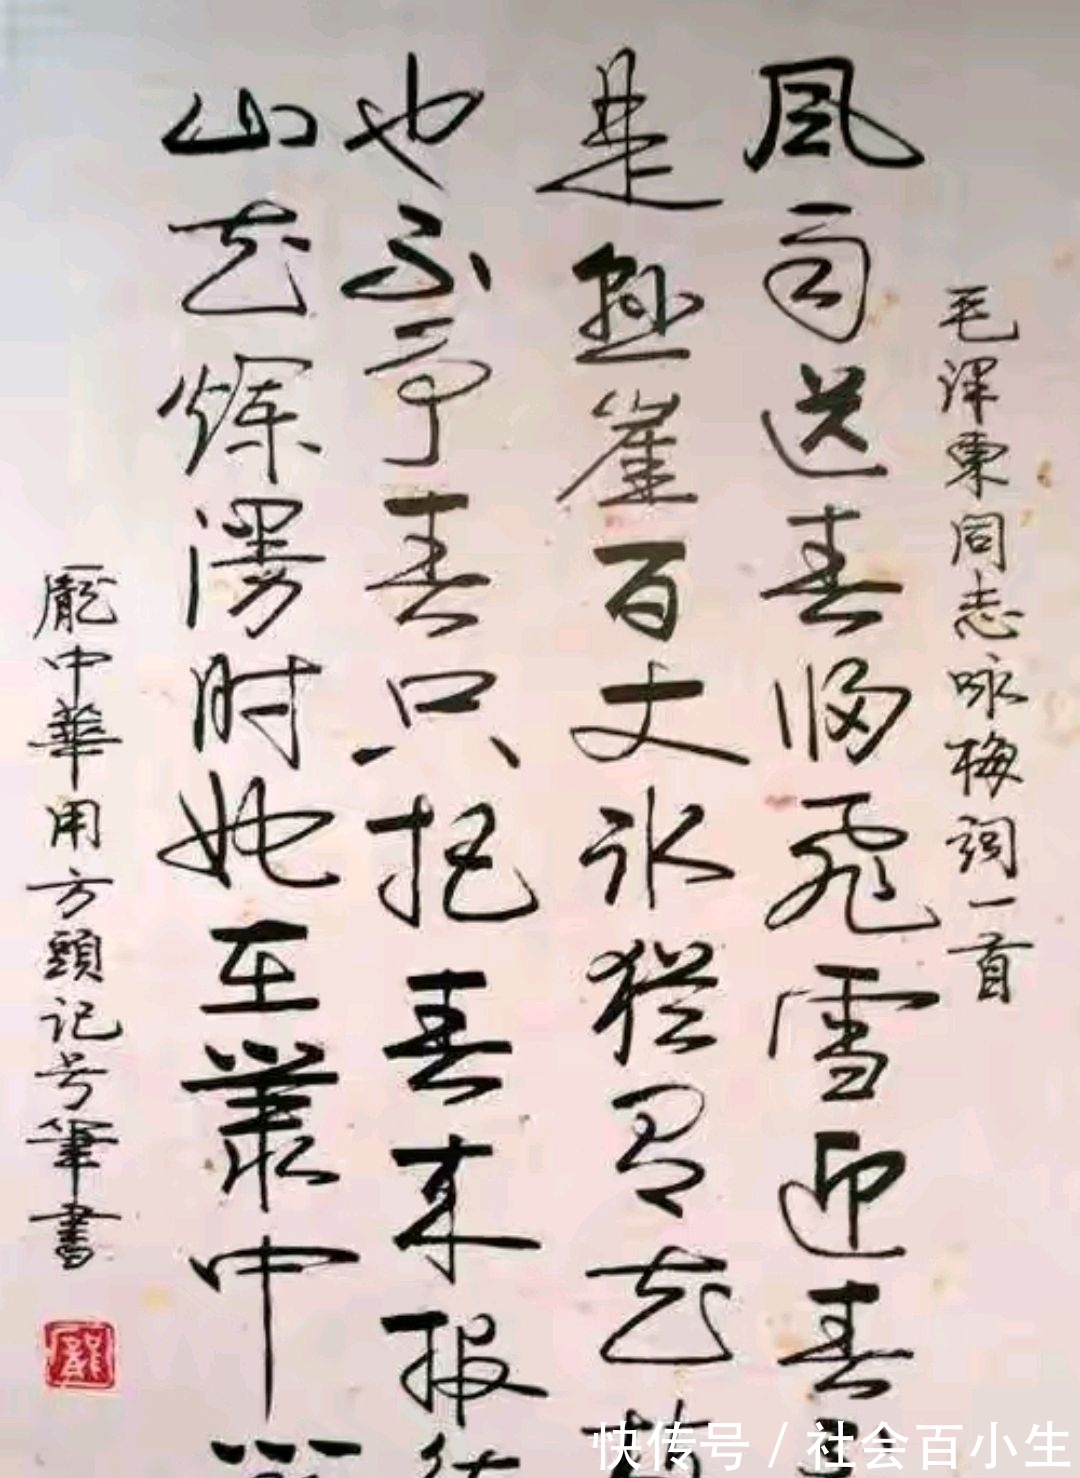 毛泽東同志咏梅词一首
风雨送春归飛雪迎春
是悬崖百丈冰猶有花
也不争春只把春来报
山花烂漫时她在叢中
龐中華用方頭记号筆書
龐
快传号 / 社会百小生